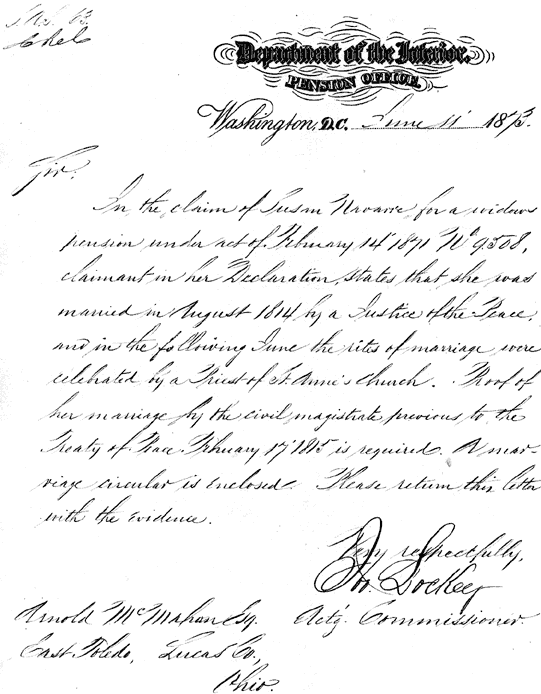 Department of the Interior,
PENSION OFFICE,
Washington, D.C. June 11" 1873.
Sir:
In the claim of Susan Navarre for a widows
pension under act of February 14" 1871 No 9508,
claimant in her Declaration, states that she was
married in August 1814 by a Justice of the Peace,
and in the following June the rites of marriage were
celebrated by a Priest of St Anne's Church. Proof of
her marriage by the civil magistrate previous to the
Treaty of Peace February 17" 1815 is required. A mar-
riage circular is enclosed. Please return this letter
with the evidence.
Very respectfully,
Lockey
Act'g. Commissioner.
Arnold McMahan Esq.
East Toledo, Lucas Co.,
Ohio.